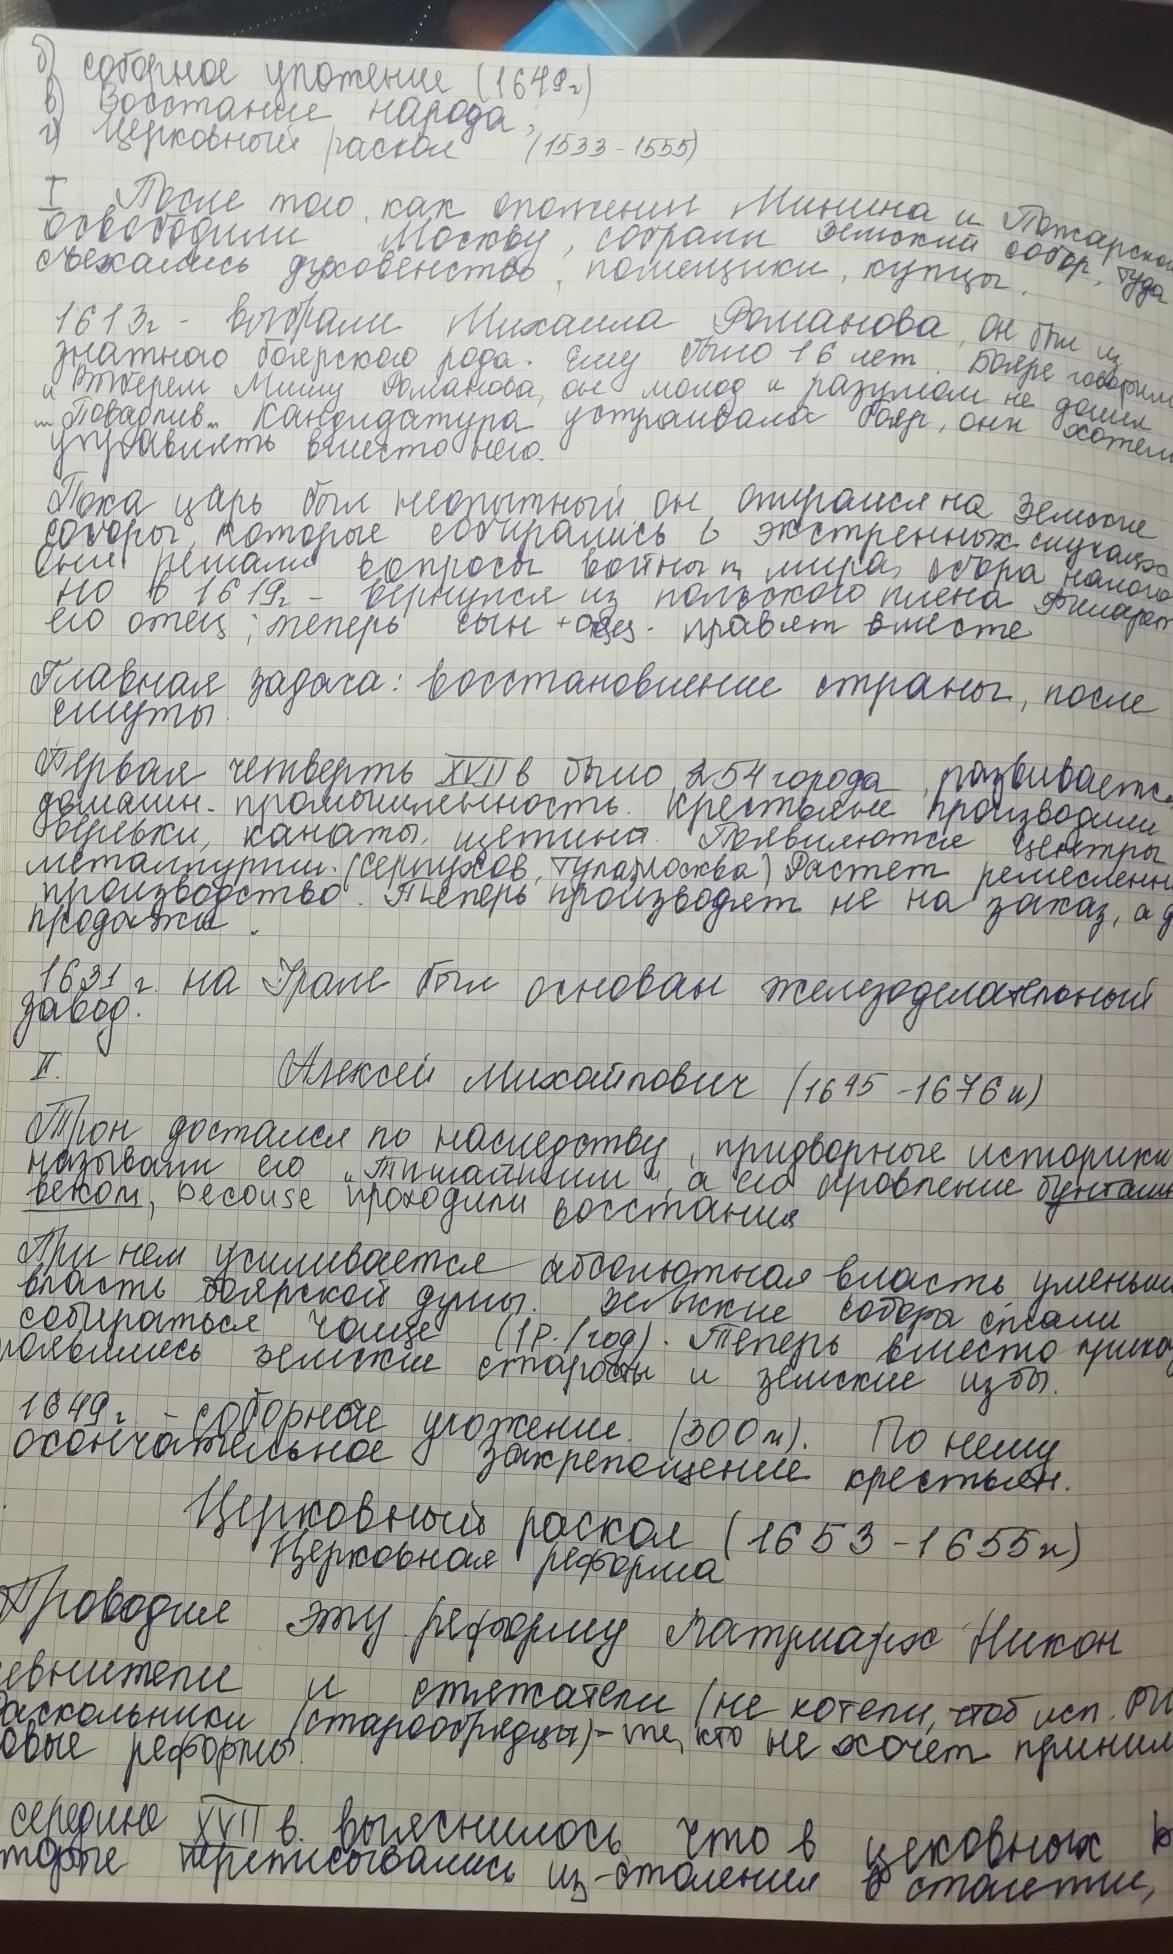 б) соборное уложение (1649г)
в) Восстание народа,
г) Церковный раскол (1533-1555)
I После того, как ополжении Минина и Пожарского
освободили Москву, собрали земский собор, туда
съехались духовенство, помещики, купцы.
1613г - выбрали Михаила Романова, он был из
знатного боярского рода. Ему было 16 лет. Бояре говорили
"Выберем Мишу Романова, он молод и разумом не дошел
Поваблив". Кандидатура устраивала бояр, они хотели
управлять вместо него.
Пока царь был неопытный он опирался на Земские
соборы, которые собирались в экстренных случаях
Они решали вопросы войны и мира, сбора налого
но в 1619г - вернулся из польского плена Филарет
его отец; теперь сын + отец. правят вместе
Главная задача: восстановление страны, после
смуты.
Первая четверть XVII в было 254 города, развивается
домашн. промышленность. Крестьяне производили
верёвки, канаты, щетина. Появляются центры
металлургии. (Серпухов, Тула, Москва) Растет ремесленн
производство. Теперь производят не на заказ, а д
продажи.
1631 г. на Урале был основан железоделательный
завод.
II. Алексей Михайлович (1645-1676гг)
Трон достался по наследству, придворные историки
называли его "Тишайшим", а его провление бунташн
веком, becouse проходили восстания
При нем усиливается абсолютная власть уменьш
власть боярской думы. Земские собора стали
собираться чаще (1р./год). Теперь вместо прика
появились земские старосты и земские избы.
1649г - соборное уложение. (300л). По нему
окончательное закрепощение крестьян.
Церковный раскол (1653-1655гг)
Церковная реформа
Проводил эту реформу Патриарх Никон
евнители и стяжатели (не хотели, чтоб исп. РП
раскольники (старообрядцы) - те, кто не хочет приним
овые реформы.
середине XVII в. выяснилось, что в цековных к
торые переписывались из-столения в столетии,